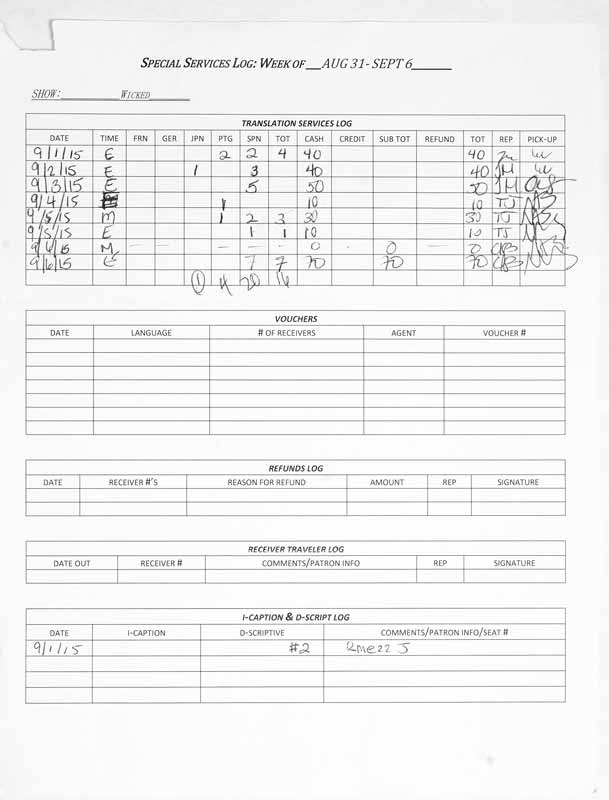 SPECIAL SERVICES LOG: WEEK OF __AUG 31- SEPT 6______
SHOW:__________WICKED_______
TRANSLATION SERVICES LOG
DATE TIME FRN GER JPN PTG SPN TOT CASH CREDIT SUB TOT REFUND TOT REP PICK-UP
9/1/15 E 2 2 4 40 40
9/2/15 E 1 3 40 40 JM
9/3/15 E 5 50 50 JM
9/4/15 1 10 10 TJ
9/5/15 M 1 2 3 30 30 TJ
9/5/15 E 1 1 10 10 TJ
9/6/15 M - - - - - - 0 0 0 CRB
9/6/15 E 7 7 70 70 70 CRB
1 4 20 16
VOUCHERS
DATE LANGUAGE # OF RECEIVERS AGENT VOUCHER #
REFUNDS LOG
DATE RECEIVER #'S REASON FOR REFUND AMOUNT REP SIGNATURE
RECEIVER TRAVELER LOG
DATE OUT RECEIVER # COMMENTS/PATRON INFO REP SIGNATURE
I-CAPTION & D-SCRIPT LOG
DATE I-CAPTION D-SCRIPTIVE COMMENTS/PATRON INFO/SEAT #
9/1/15 #2 Rmezz J